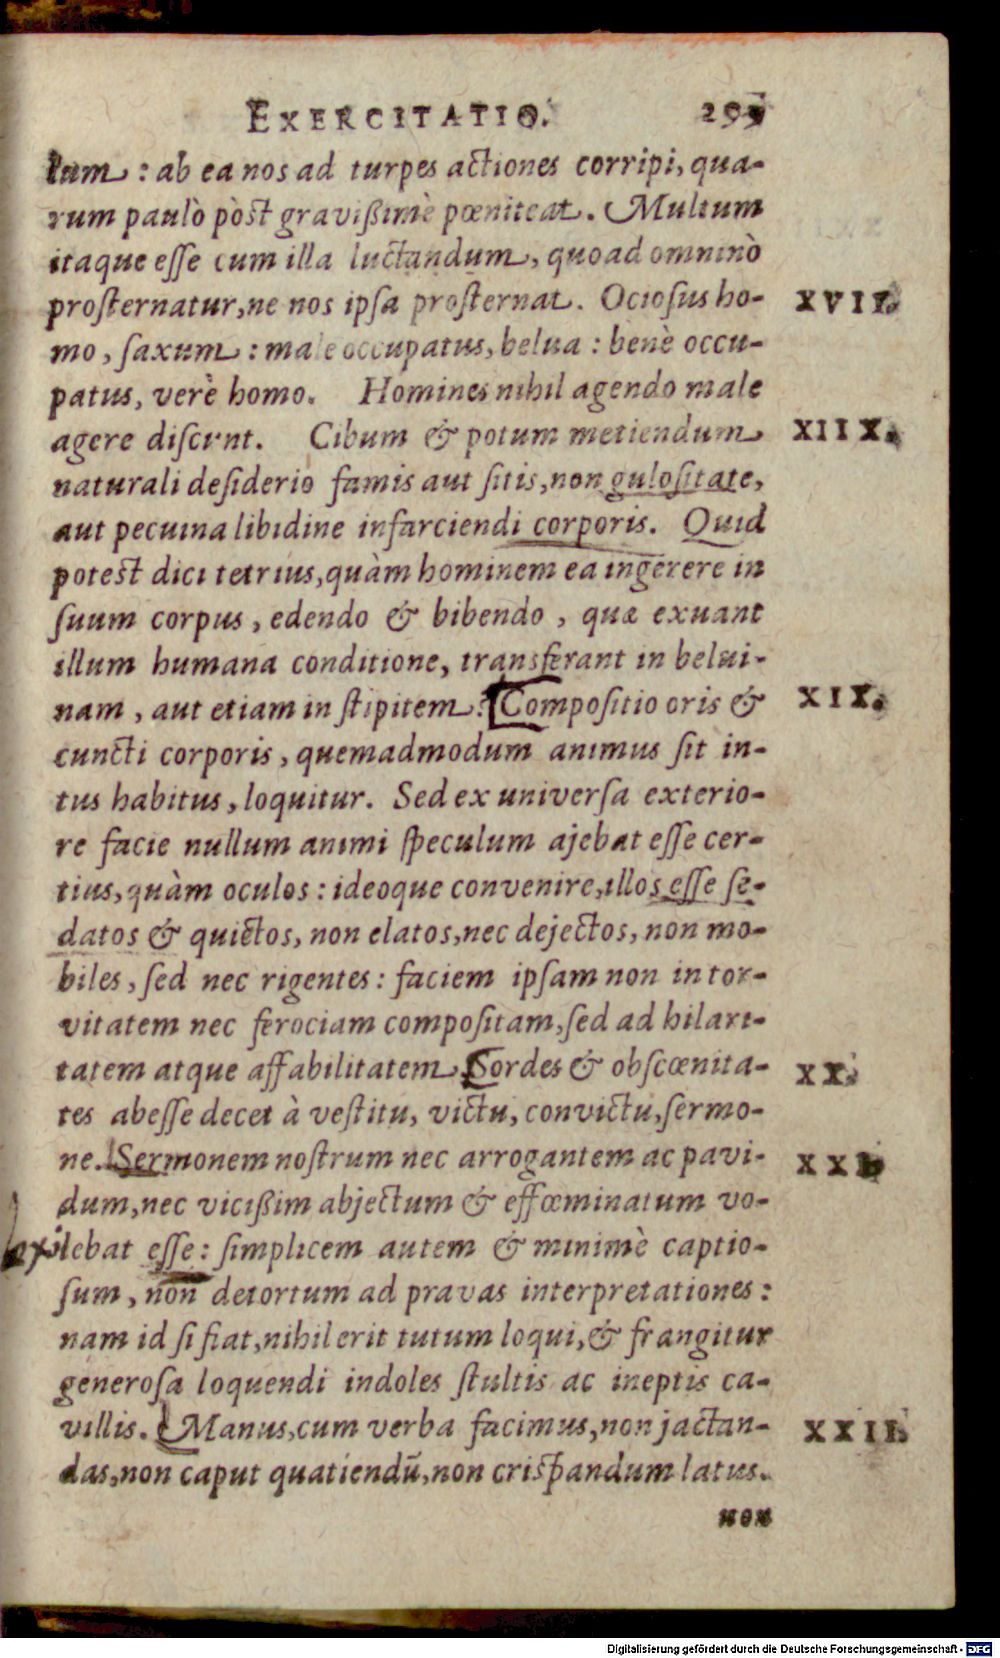 EXERCITATIO. 299
lum : ab ea nos ad turpes actiones corripi, qua-
rum paulò pòst gravißimè pœniteat. Multum
itaque eſſe cum illa luctandum, quoad omninò
proſternatur, ne nos ipſa proſternat. Ocioſus ho- XVII.
mo, ſaxum : male occupatus, belua : benè occu-
patus, verè homo. Homines nihil agendo male
agere diſcunt. Cibum & potum metiendum XIIX.
naturali deſiderio famis aut ſitis, non guloſitate,
aut pecuina libidine infarciendi corporis. Quid
potest dici tetrius, quàm hominem ea ingerere in
ſuum corpus, edendo & bibendo, quæ exuant
illum humana conditione, transferant in belui-
nam, aut etiam in ſtipitem? Compoſitio oris & XIX.
cuncti corporis, quemadmodum animus ſit in-
tus habitus, loquitur. Sed ex univerſa exterio-
re facie nullum animi ſpeculum ajebat eſſe cer-
tius, quàm oculos : ideoque convenire, illos eſſe ſe-
datos & quietos, non elatos, nec dejectos, non mo-
biles, ſed nec rigentes : faciem ipſam non in tor-
vitatem nec ferociam compoſitam, ſed ad hilari-
tatem atque affabilitatem. Sordes & obſcœnita- XX.
tes abeſſe decet à veſtitu, victu, convictu, ſermo-
ne. Sermonem noſtrum nec arrogantem ac pavi- XXI.
dum, nec viciſſim abjectum & effœminatum vo-
lebat eſſe : ſimplicem autem & minimè captio-
ſum, non detortum ad pravas interpretationes :
nam id ſi fiat, nihil erit tutum loqui, & frangitur
generoſa loquendi indoles ſtultis ac ineptis ca-
villis. Manus, cum verba facimus, non jactan- XXII.
das, non caput quatiendū, non criſpandum latus.
non
Digitalisierung gefördert durch die Deutsche Forschungsgemeinschaft - DFG